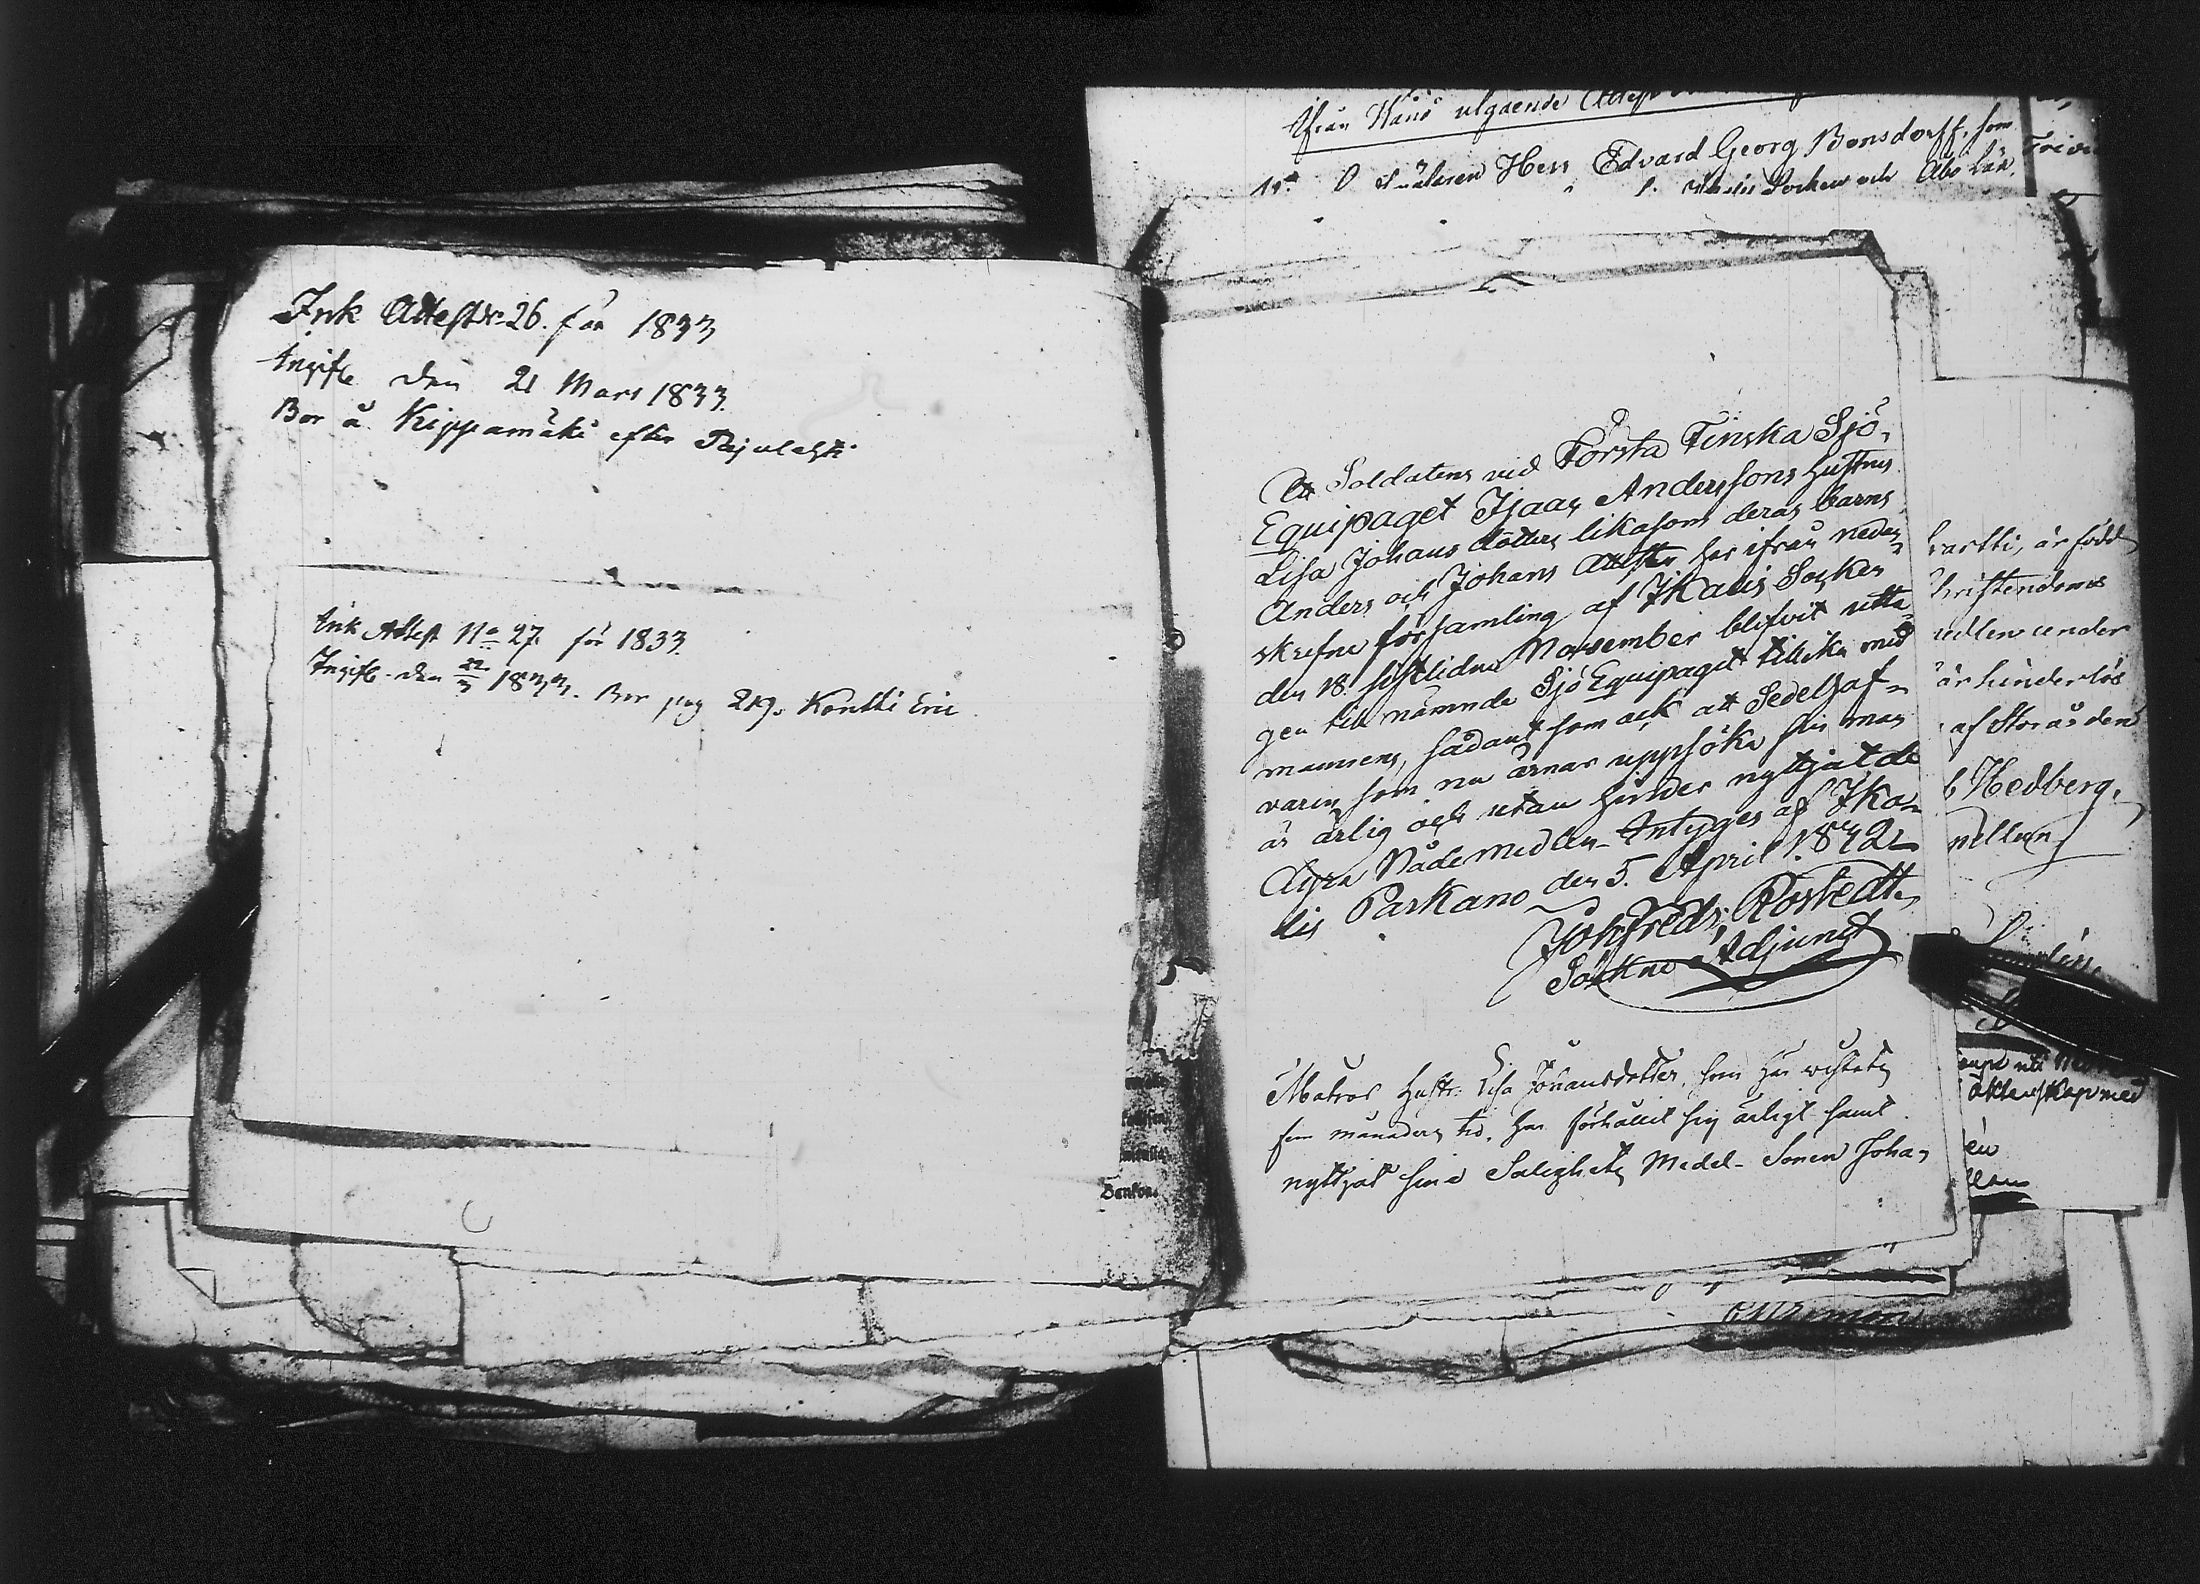 Ink Attest No 26. för 1833
Ingift den 21 Mars 1833.
Bor å Kippamäki efter
Ink Attest No 27. för 1833.
Ingift. den 22/3 1833. Bor pag 219. Kontti Eric
ifrån utgående
Herr Edvard Georg Bonsdorff, som
Socken och Åbo Län,
Att Soldatens vid Första Finska Sjö-
Equipaget Isaac Anderssons hustru
Lisa Johansdotter likasom deras barns
Anders och Johans Attester här ifrån nedan-
skrefne församling af Ikalis Socken
den 18. sistlidne November blifvit utta-
gen till nämnde Sjö Equipaget tillika med
mannens, sådant som ock att Sedelhaf-
varen som nu ärnar uppsöka sin man
är ärlig och utan hinder nyttjat de
dyra Nådemedlen Intyges af Ika-
lis Parkano den 5. April 1832
Joh. Fredr. Roskedt,
Sockne Adjunct
Matros Hustr. Lisa Johansdotter, som här vistats
fem månaders tid, har förhållit sig ärligt samt
nyttjat sine Salighets Medel - Sonen Joha-
är född
Christendoms
medlen under
är hinderlös
af Storås den
Hedberg.
äktenskap med